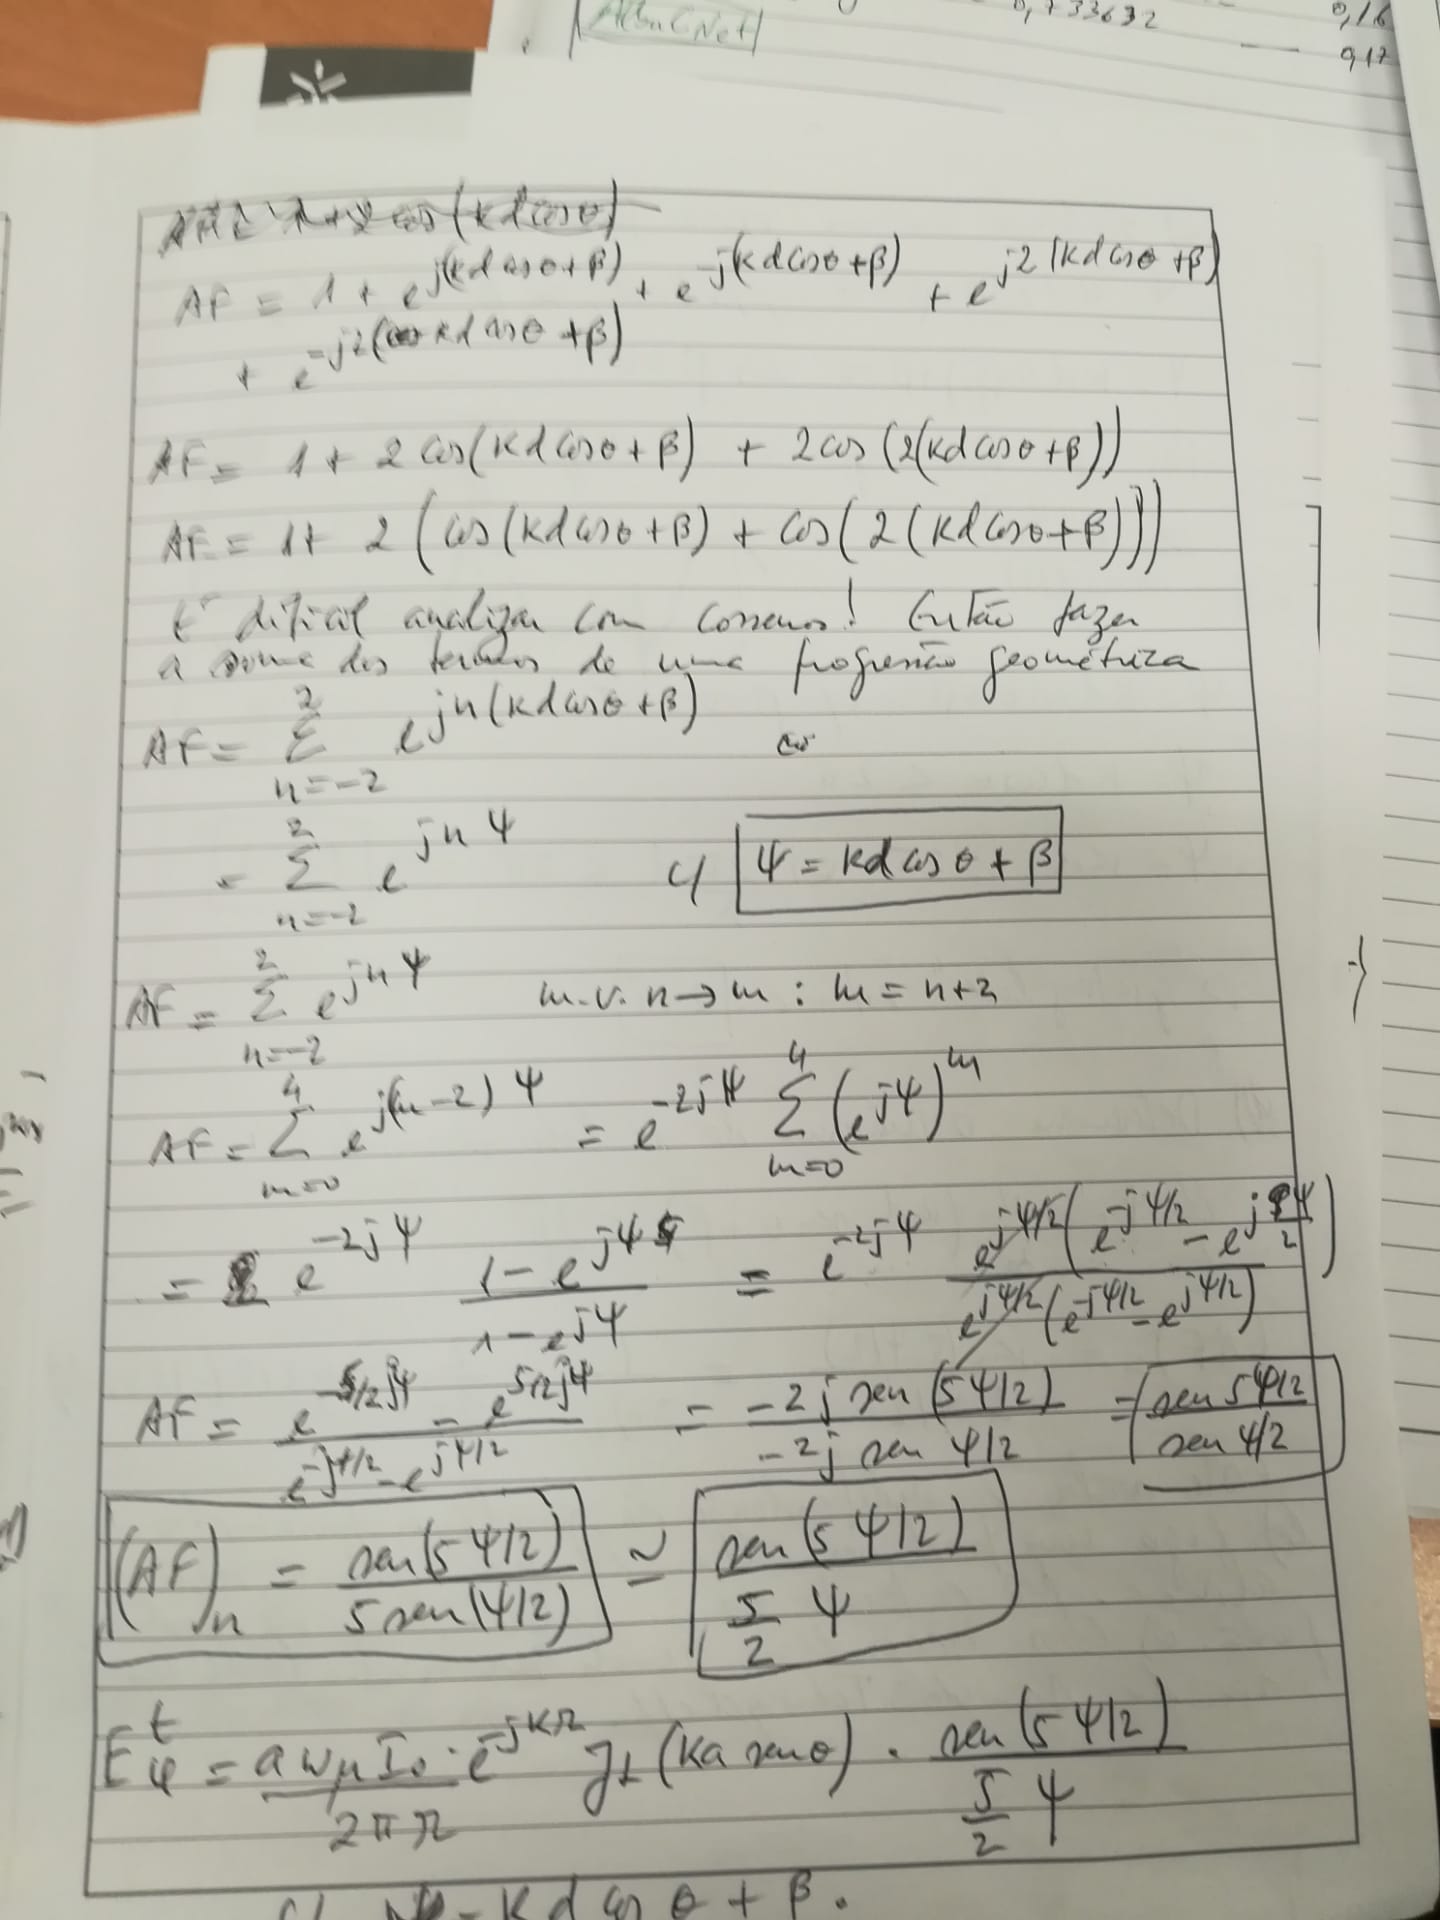 AlbnCNet
0,733632
0,16
0,17
AF = 1 + 2 cos(kd cosθ)
AF = 1 + e^{j(kd cosθ+β)} + e^{-j(kd cosθ+β)} + e^{j2(kd cosθ+β)}
+ e^{-j2(kd cosθ+β)}
AF = 1 + 2 cos(kd cosθ+β) + 2cos(2(kd cosθ+β))
AF = 1 + 2(cos(kd cosθ+β) + cos(2(kd cosθ+β)))
É difícil analizar com cossenos! Então fazer
a soma dos termos de uma progressão geométrica
AF = Σ_{n=-2}^{2} e^{jn(kd cosθ+β)}
= Σ_{n=-2}^{2} e^{jnψ} c/ ψ = kd cosθ + β
AF = Σ_{n=-2}^{2} e^{jnψ} m.v. n→m : m = n+2
AF = Σ_{m=0}^{4} e^{j(m-2)ψ} = e^{-2jψ} Σ_{m=0}^{4} (e^{jψ})^m
= e^{-2jψ} (1-e^{jψ5})/(1-e^{jψ}) = e^{-2jψ} e^{jψ/2}(e^{-jψ/2} - e^{j9ψ/2})/e^{jψ/2}(e^{-jψ/2} - e^{jψ/2})
AF = (e^{-5/2jψ} - e^{5/2jψ})/(e^{-jψ/2} - e^{jψ/2}) = -2j sen(5ψ/2)/-2j sen ψ/2 = sen 5ψ/2/sen ψ/2
(AF)_n = sen(5ψ/2)/5 sen(ψ/2) ≃ sen(5ψ/2)/(5/2 ψ)
E_φ^t = aωμI₀/2πr · e^{-jkr} J₁(ka senθ) · sen(5ψ/2)/(5/2 ψ)
c/ ψ = kd cosθ + β.